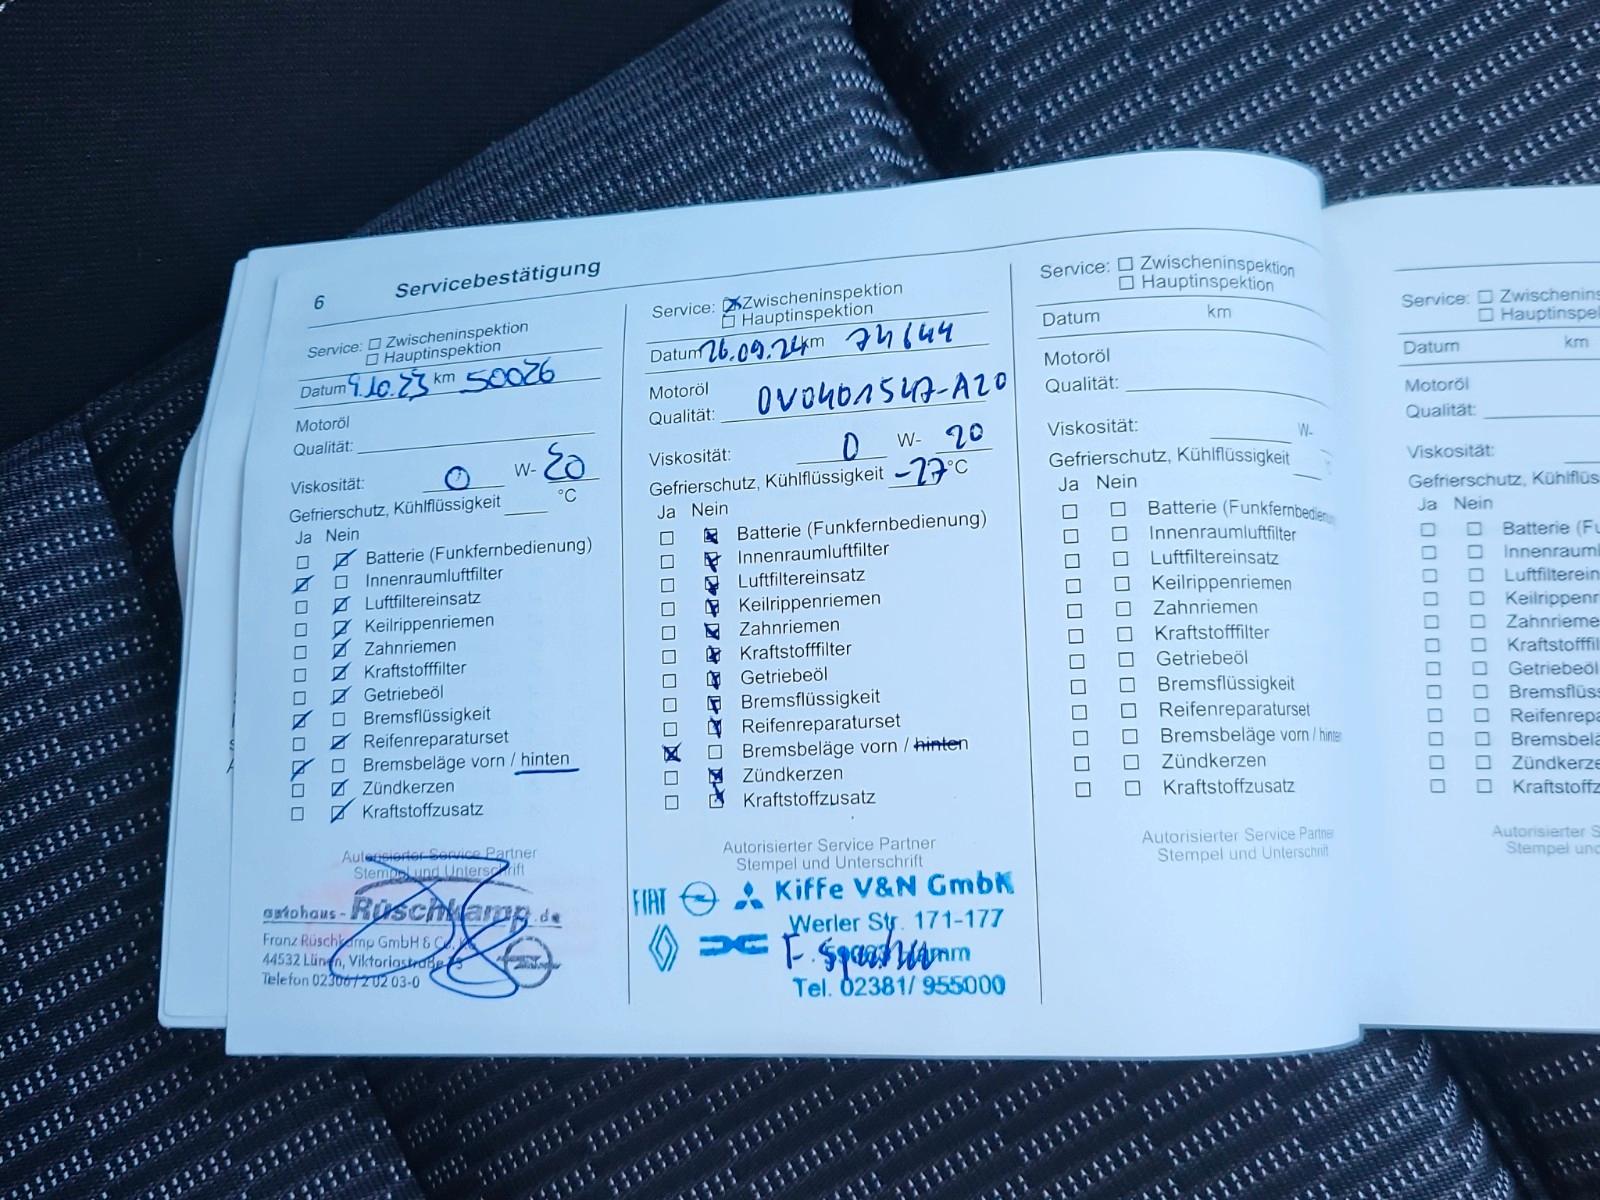 6 Servicebestätigung
Service: Zwischeninspektion
Hauptinspektion
Datum 9.10.23 km 50026
Motoröl
Qualität:
Viskosität: 0 W- 20
Gefrierschutz, Kühlflüssigkeit °C
Ja Nein
Batterie (Funkfernbedienung)
Innenraumluftfilter
Luftfiltereinsatz
Keilrippenriemen
Zahnriemen
Kraftstofffilter
Getriebeöl
Bremsflüssigkeit
Reifenreparaturset
Bremsbeläge vorn / hinten
Zündkerzen
Kraftstoffzusatz
Autorisierter Service Partner
Stempel und Unterschrift
autohaus-Rüschkamp.de
Franz Rüschkamp GmbH & Co. KG
44532 Lünen, Viktoriastraße
Telefon 02306 / 2 02 03-0
Service: Zwischeninspektion
Hauptinspektion
Datum 26.09.24 km 74644
Motoröl
Qualität: OV0401547-A20
Viskosität: 0 W- 20
Gefrierschutz, Kühlflüssigkeit -27 °C
Ja Nein
Batterie (Funkfernbedienung)
Innenraumluftfilter
Luftfiltereinsatz
Keilrippenriemen
Zahnriemen
Kraftstofffilter
Getriebeöl
Bremsflüssigkeit
Reifenreparaturset
Bremsbeläge vorn / hinten
Zündkerzen
Kraftstoffzusatz
Autorisierter Service Partner
Stempel und Unterschrift
FIAT Kiffe V&N GmbH
Werler Str. 171-177
Tel. 02381/ 955000
Service: Zwischeninspektion
Hauptinspektion
Datum km
Motoröl
Qualität:
Viskosität: W-
Gefrierschutz, Kühlflüssigkeit
Ja Nein
Batterie (Funkfernbedienung
Innenraumluftfilter
Luftfiltereinsatz
Keilrippenriemen
Zahnriemen
Kraftstofffilter
Getriebeöl
Bremsflüssigkeit
Reifenreparaturset
Bremsbeläge vorn / hinten
Zündkerzen
Kraftstoffzusatz
Autorisierter Service Partner
Stempel und Unterschrift
Service: Zwischenins
Hauptinspe
Datum km
Motoröl
Qualität:
Viskosität:
Gefrierschutz, Kühlflüs
Ja Nein
Batterie (Fu
Innenrauml
Luftfilterein
Keilrippenr
Zahnrieme
Kraftstoffil
Getriebeöl
Bremsflüss
Reifenrepa
Bremsbelä
Zündkerze
Kraftstoffz
Autorisierter S
Stempel und